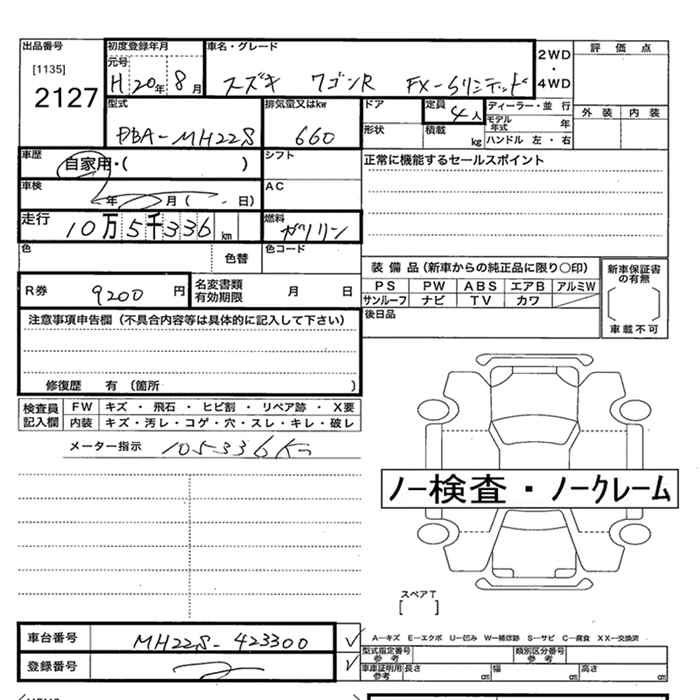 出品番号 初度登録年月 車名・グレード 2WD・4WD 評価点
[1135] 元号
2127 H 20年 8月 スズキ ワゴンR FX-Sリミテッド
型式 排気量又はkw ドア 定員 4人 ディーラー・並行 外装 内装
DBA-MH22S 660 形状 積載 kg モデル年式 年
ハンドル 左・右
車歴 自家用・( ) シフト 正常に機能するセールスポイント
車検 年 月( 日) AC
走行 10万5千336km 燃料 ガソリン
色 色替 色コード
装備品(新車からの純正品に限り〇印) 新車保証書の有無
R券 9200円 名変書類有効期限 月 日 PS PW ABS エアB アルミW
サンルーフ ナビ TV カワ
注意事項申告欄(不具合内容等は具体的に記入して下さい) 後日品 車載不可
修復歴 有(箇所 )
検査員記入欄 FW キズ・飛石・ヒビ割・リペア跡・X要
内装 キズ・汚レ・コゲ・穴・スレ・キレ・破レ
メーター指示 105336Km
ノー検査・ノークレーム
スペアT
[ ]
車台番号 MH22S-423300 A-キズ E-エクボ U-凹み W-補修跡 S-サビ C-腐食 XX-交換済
型式指定番号 参考 類別区分番号 参考
登録番号 車庫証明用参考 長さ cm 幅 cm 高さ cm